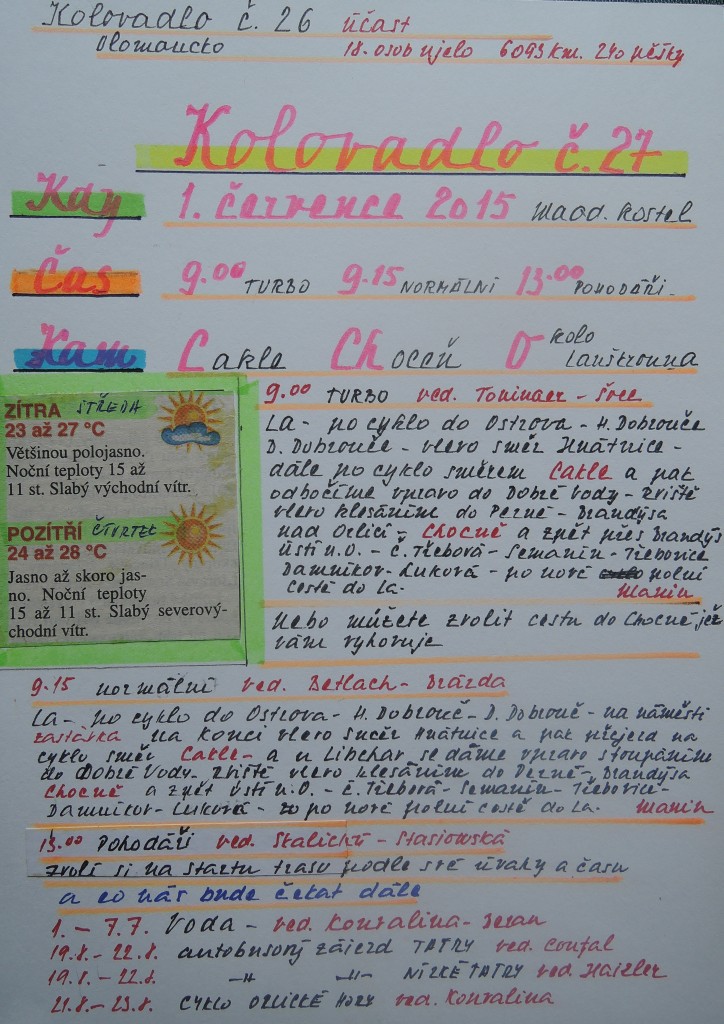 Kolovadlo č. 26 účast
Olomoucko 18. osob ujelo 6093 km. 240 pěšky
Kolovadlo č. 27
Kdy 1. července 2015 Maod. kostel
Čas 9.00 TURBO 9.15 NORMÁLNÍ 13.00 POHODÁŘI
Kam Cakle Choceň Okolo Lanškrouna
ZÍTRA STŘEDA
23 až 27 °C
Většinou polojasno.
Noční teploty 15 až
11 st. Slabý východní vítr.
POZÍTŘÍ ČTVRTEK
24 až 28 °C
Jasno až skoro jas-
no. Noční teploty
15 až 11 st. Slabý severový-
chodní vítr.
9.00 TURBO ved. - Švec
La- po cyklo do Ostrova - H. Dobrouče
D. Dobrouče - vlevo směr Hnátnice -
dále po cyklo směrem Cakle a pak
odbočíme vpravo do Dobré Vody - Zviště
vlevo klesáním do Perné - Brandýsa
nad Orlicí - Chocně a zpět přes Brandýs
Ústí n.O. - Č. Třebová - Semanín - Třebovice
Damníkov - Luková - po nové polní
cestě do La. Manin
Nebo můžete zvolit cestu do Chocně jež
vám vyhovuje
9.15 normální ved. Betlach - Brázda
La- po cyklo do Ostrova - H. Dobrouč - D. Dobrouč - na náměstí
zastávka na konci vlevo směr Hnátnice a pak přejezd na
cyklo směr Cakle - a u Libchav se dáme vpravo stoupáním
do Dobré Vody - Zviště vlevo klesáním do Perné - Brandýsa
Chocně a zpět Ústí n.O. - Č. Třebová - Semanín - Třebovice -
Damníkov - Luková - po nové polní cestě do La. Manin
13.00 Pohodáři ved. Skalická - Stasiowská
zvolí si na startu trasu podle své úvahy a času
a co nás bude čekat dále
1. - 7.7. Voda - ved. Konvalina - Beran
19.8. - 22.8. autobusový zájezd TATRY ved. Coufal
19.8. - 22.8. -||- -||- NÍZKÉ TATRY ved. Haizler
21.8. - 23.8. CYKLO ORLICKÉ HORY ved. Konvalina